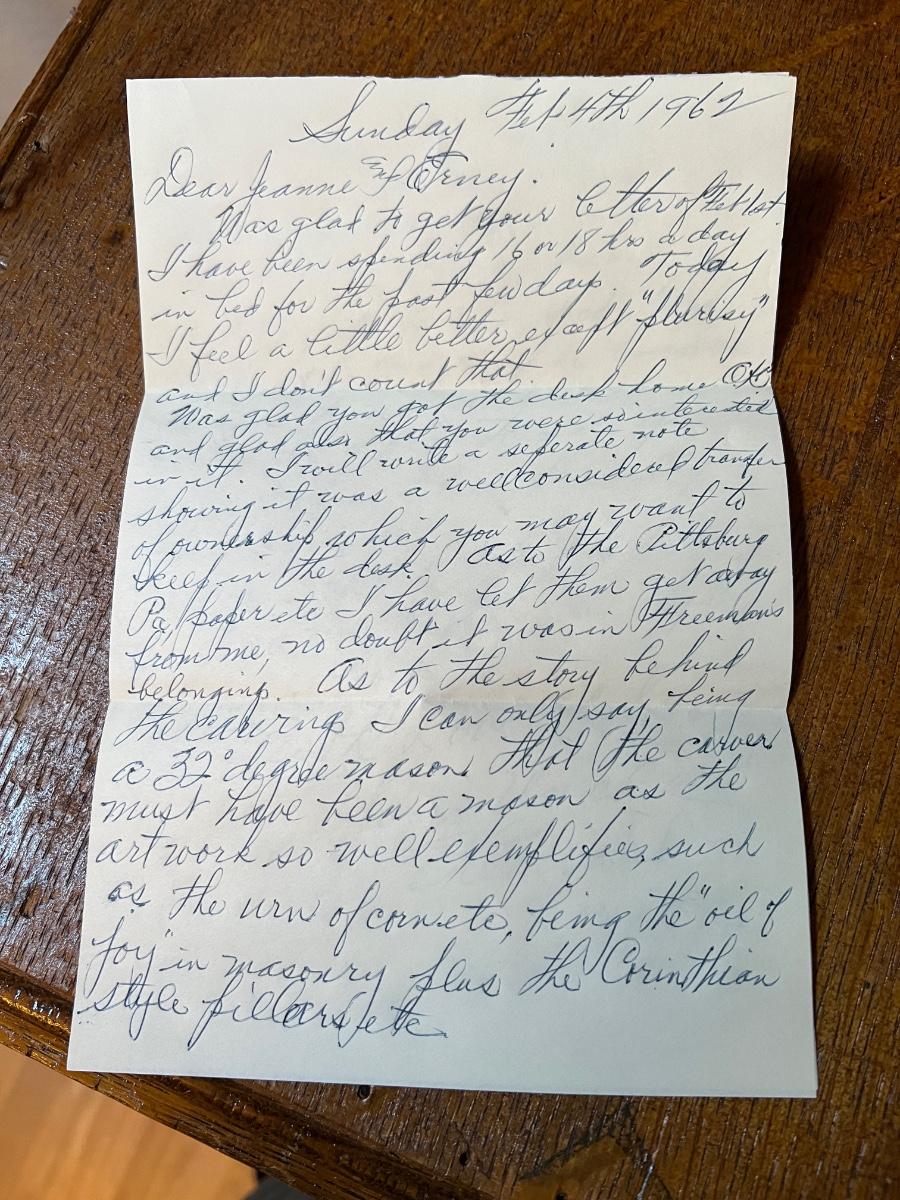 Sunday Feb 4th 1962
Dear Jeanne and Erney.
Was glad to get your letter of Feb 1st
I have been spending 16 or 18 hrs a day
in bed for the past few days. Today
I feel a little better, except "plurisy"
and I don't count that
Was glad you got the desk home OK
and glad also that you were so interested
in it. I will write a seperate note
showing it was a well considered transfer
of ownership which you may want to
keep in the desk. As to the Pittsburg
Pa. paper etc I have let them get away
from me, no doubt it was in Freeman's
belonging. As to the story behind
the carving I can only say, being
a 32° degree mason that the carver
must have been a mason as the
art work so well exemplifies, such
as the urn of corn etc, being the "oil of
joy" in masonry plus the Corinthian
style pillars etc